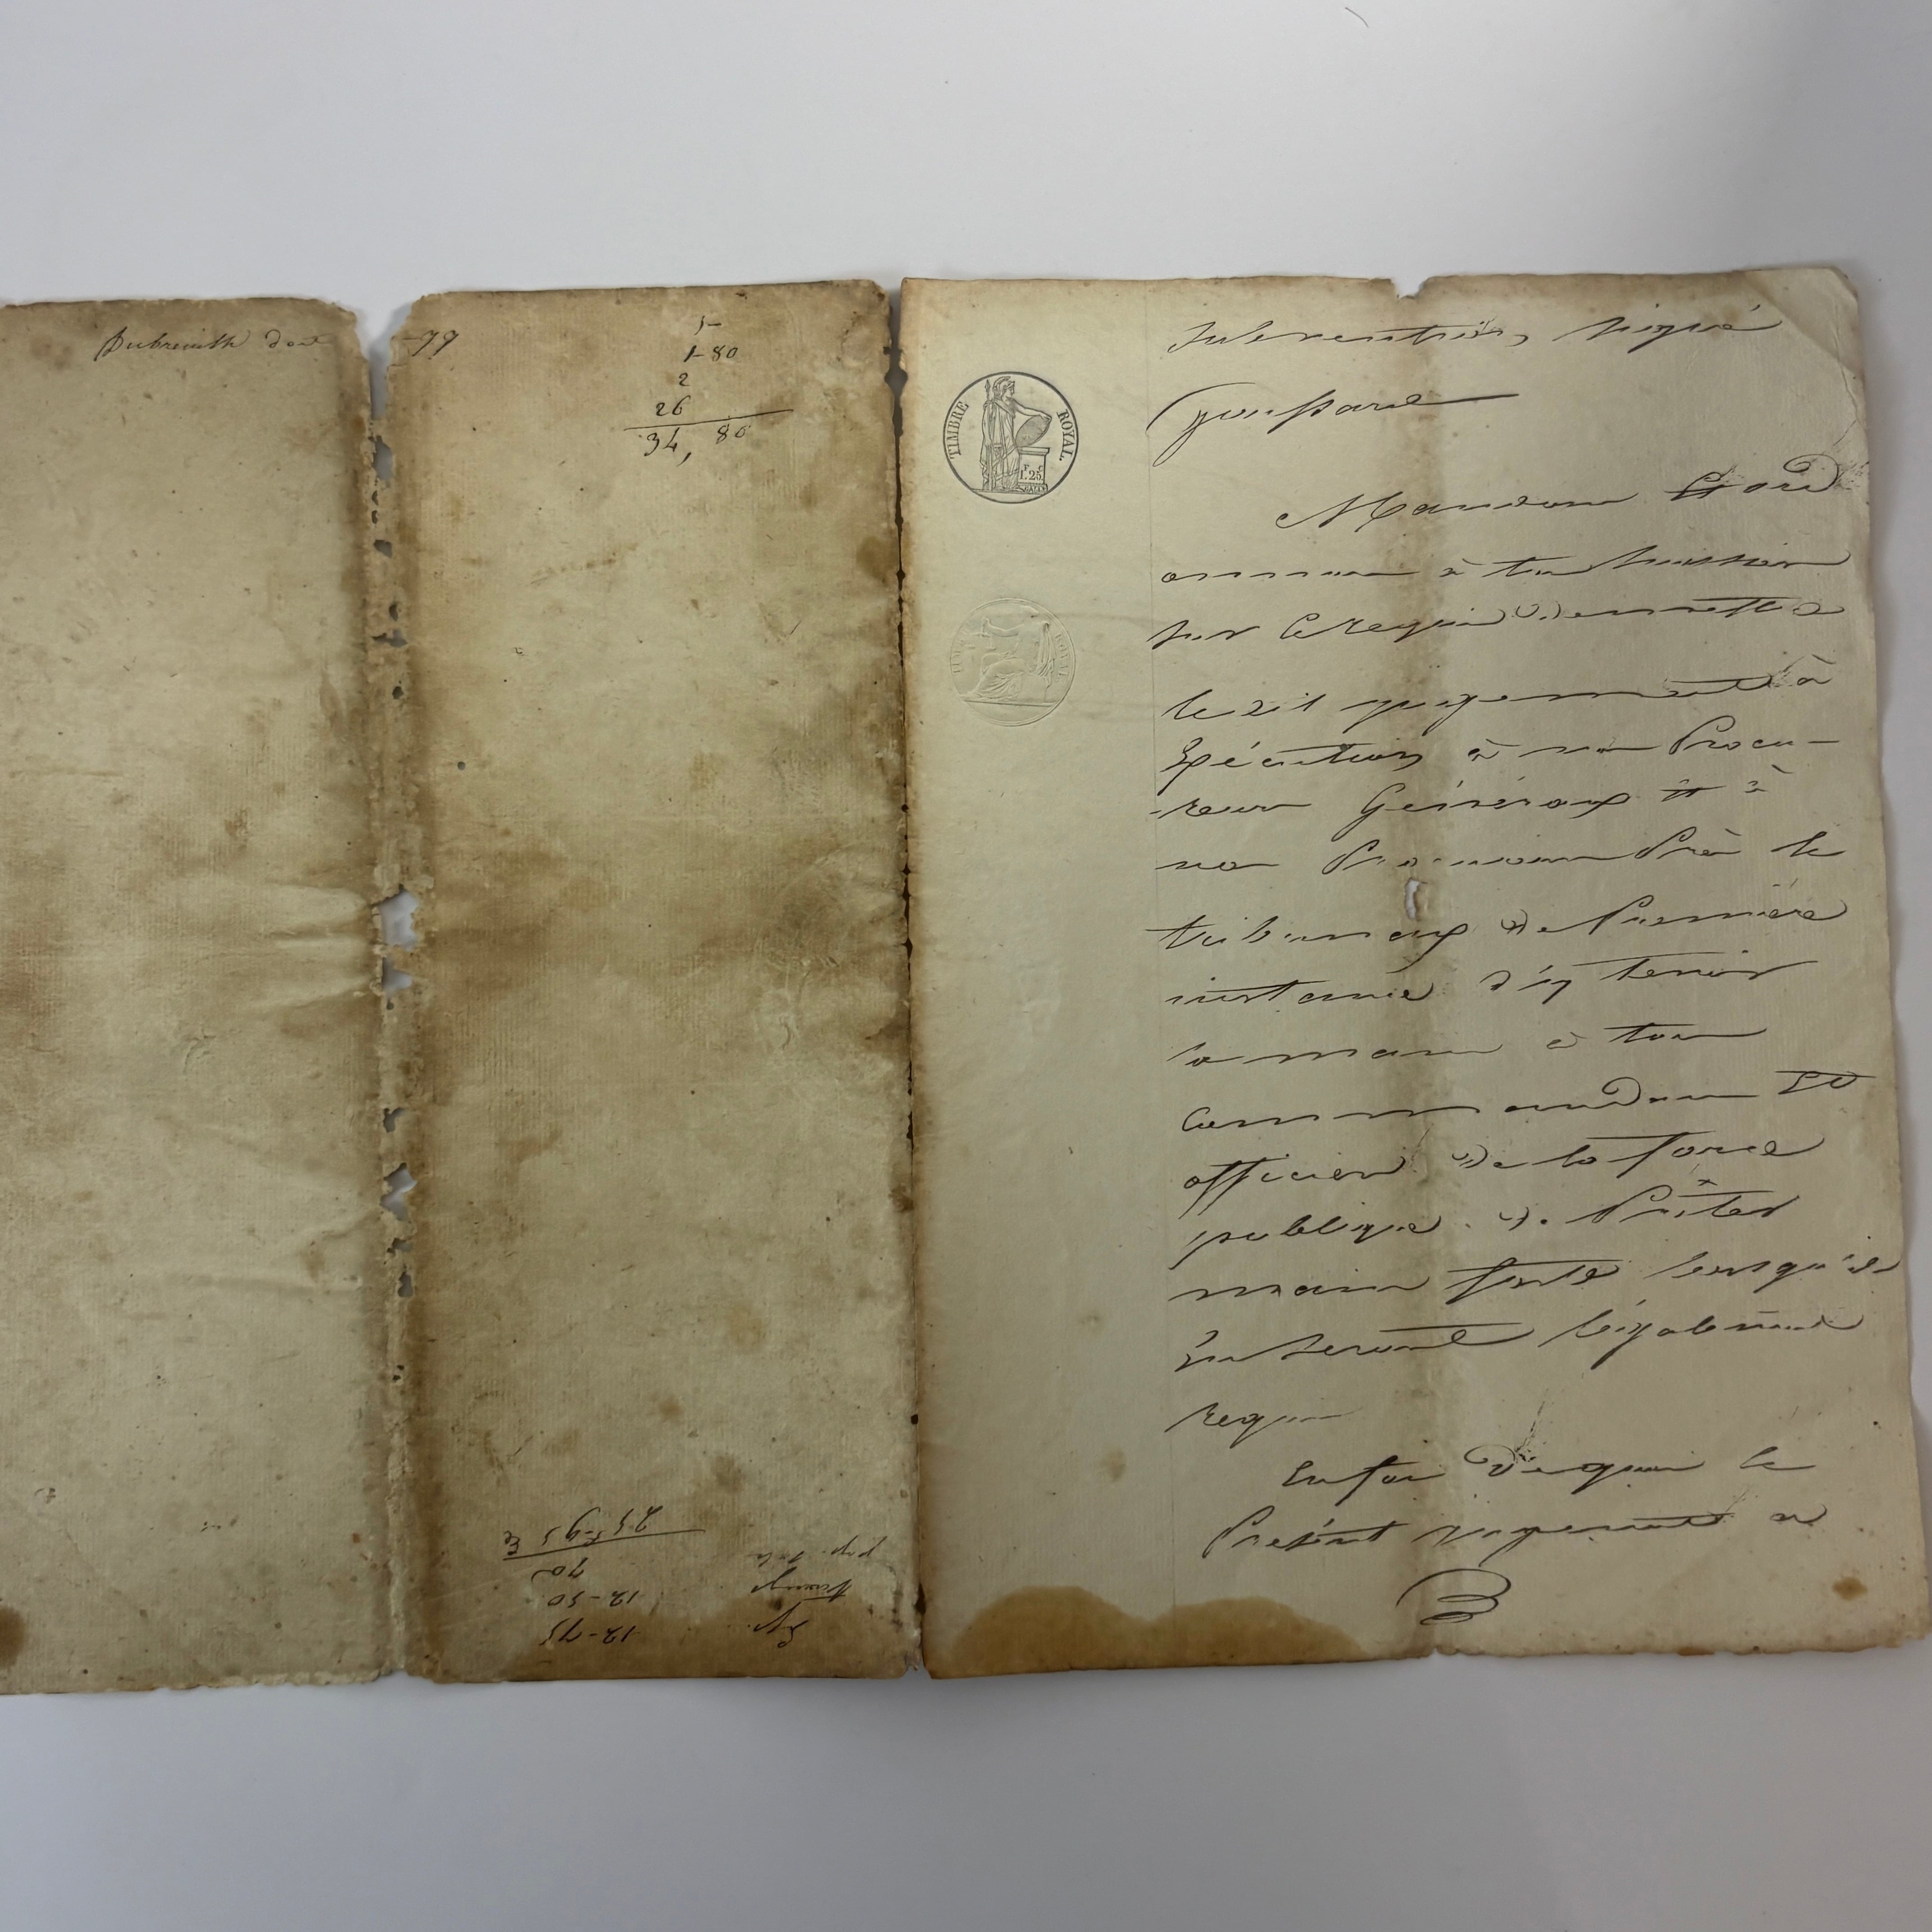 Dubreuilh doit
-99
5-
1-80
2
26
34, 80
TIMBRE ROYAL
F. C
1.25
signé
Mandons Et ord
onnons à tous huissiers
sur ce requis de mettre
ledit jugement à
Exécution à nos Procu-
-reurs Généraux et à
nos Procureurs Près les
tribunaux de Première
instance d'y tenir
la main à tous
Commandans Et
officiers de la force
publique de Prêter
main forte lorsqu'ils
En seront légalement
requis
En foi de quoi le
Présent jugement a
Exp. 12-75
timbre 12-50
70
25-95 c